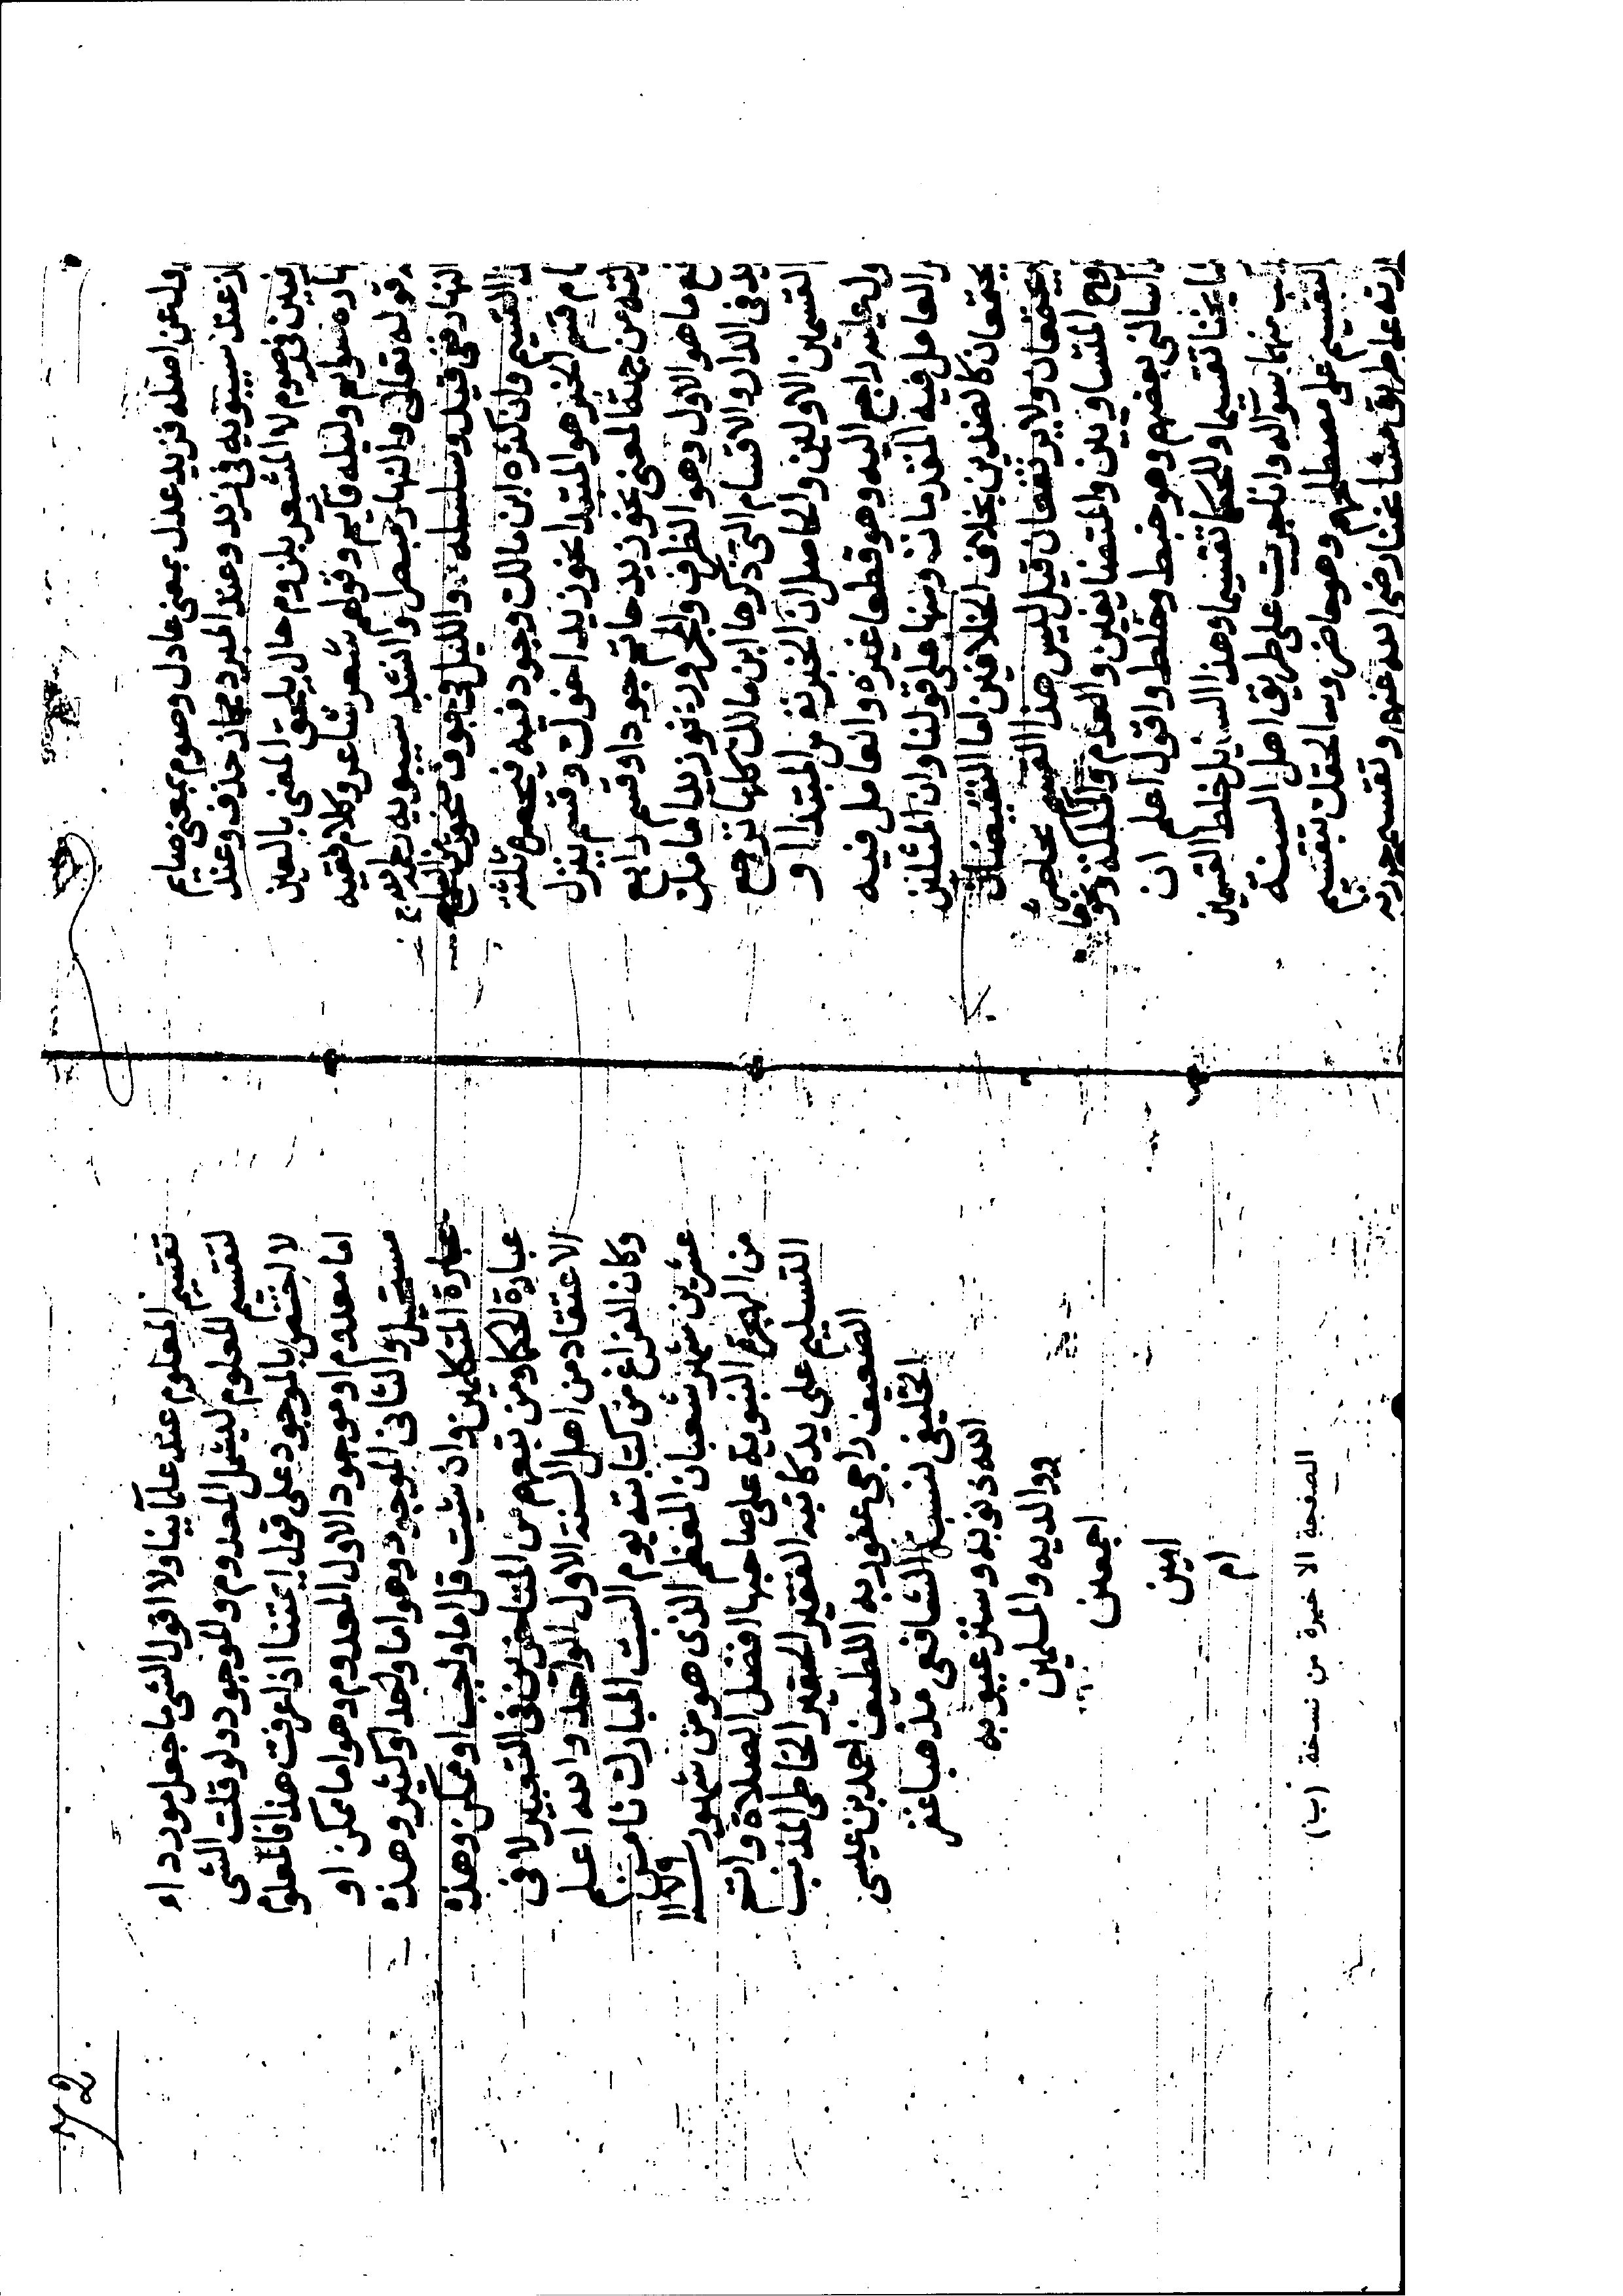 وله عن اصله فزيد عدل بمعنى عادل وصوم بمعنى صايم
عند سيبويه فى زيد وعند المبرد مجاز حذف وعند
فى صوم لا المشعر بلزوم حال يلحق المعنى بالعين
نهاره صايم وليله قايم وقولهم شعر شاعر وكلام فقيه
قوله تعالى والنهار مبصرا وانشد سيبويه رحمه الله
النهار ففى قيد وسلسلة والليل فى جوف منحوت من الساج
التقسيم وان كثره ابن مالك وجود فيه فيحصر ثلثة
قسم الخبر هو المبتدا نحو زيد اخوك وقسم ينزل
منزلته من جهة المعنى نحو زيد حاتم جودا وقسم رابع
ما هو الاول وهو الظرف والمجرور نحو زيد امامك
زيد فى الدار والاقسام التى ذكرها ابن مالك كلها ترجع
القسمين الاولين والحاصل ان الخبر نفس المبتدا او
عايد راجع اليه وهو قطعا غيره والعامل فيه
العامل فيه المتقدمات ومنها على قولنا وان المثلين
يجتمعان كالضدين بخلاف الخلافين اما النقيضان
يجتمعان ولا يرتفعان قيل ليس هذا التقسيم بحاصر
المتساويين والمتضايفين والعدم والملكة ونحوها
سالنى بعضهم وهو خبط وخلط واقول اعلم ان
لمشايخنا تقسيما وللحكما تقسيما وهذا السايل خلط القسمين
منها سواله وانا اجريت على طريق اهل السنة
التقسيم على مصطلحهم وهو حاضر وسالحقك بتقسيم
على طريق مشايخنا رضى الله عنهم وتقسيم حررته
تقسيم المعلوم عند علمآينا ولا اقول الشى ما جعل مورداء
لتقسيم المعلوم ليشمل المعدوم والموجود ولو قلت الشى
لاختص بالموجود على قول ايمتنا اذا عرفت هذا فالمعلوم
اما معدوم او موجود الاول المعدوم وهو اما ممكن او
مستحيل والثانى الموجود وهو اما واحد او كثير وهذه
عبارة المتكلمين وان شيت قل اما واجب او ممكن وهذه
عبارة الحكما ومن تبعهم من المتاخرين فى التعبير لا فى
الاعتقاد من اهل السنة الاول الواحد والله اعلم
وكان الفراغ من كتابته يوم السبت المبارك ثامن
عشرين شهر شعبان المعظم الذى هو من شهور
من الهجرة النبوية على صاحبها افضل الصلاة واتم
التسليم على يد كاتبه الفقير الحقير الخاطى المذنب
الضعيف راجى عفو ربه اللطيف احمد بن عيسى
الخليفى نسبة الشافعى مذهبا غفر
الله ذنوبه وستر عيوبه
ووالديه والمسلمين
اجمعين
امين
ام
الصفحة الاخيرة من نسخة (ب)
72